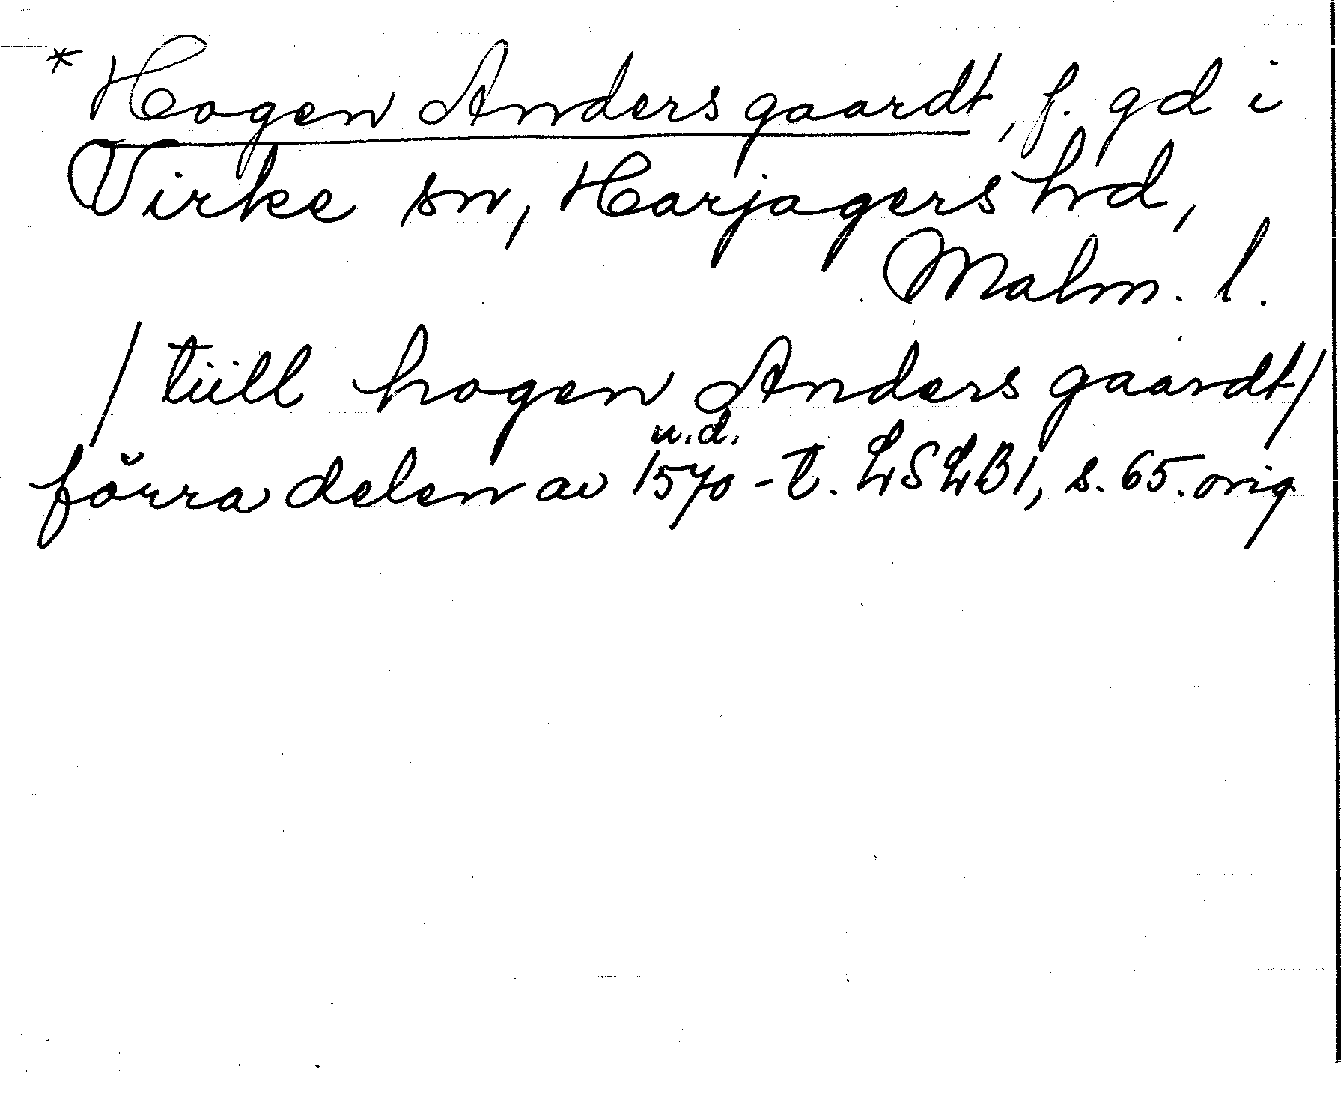 * Hogen Anders gaardt, f. gd i
Virke sn, Harjagers hd,
Malm. l.
/ tiill hogen Anders gaardt/
u.d.
förra delen av 1570-t. LSLB1, s. 65. orig